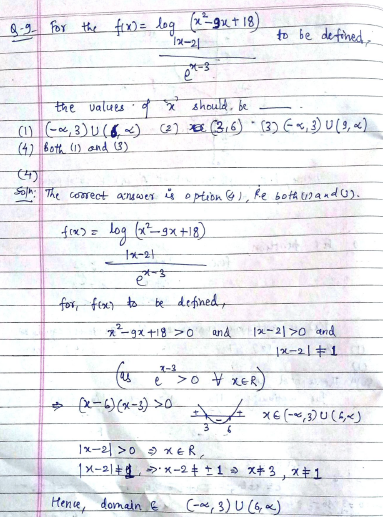 Q.9. For the f(x) = log (x²-9x+18) to be defined,
|x-2|
e^x-3
the values of 'x' should be ____.
(1) (-∝, 3) ∪ (6, ∝) (2) (3,6) (3) (-∝, 3) ∪ (9, ∝)
(4) Both (1) and (3)
(4)
Soln: The correct answer is option (4), i.e both (1) and (3).
f(x) = log (x²-9x+18)
|x-2|
e^x-3
for, f(x) to be defined,
x²-9x+18 >0 and |x-2|>0 and
|x-2| ≠ 1
(as e^x-3 > 0 ∀ x∈R)
⇒ (x-6)(x-3) >0 + - + 3 6 x∈(-∝,3)∪(6,∝)
|x-2| >0 ⇒ x∈R,
|x-2| ≠ 1, ⇒ x-2 ≠ ±1 ⇒ x≠3, x≠1
Hence, domain ∈ (-∝,3)∪(6,∝)